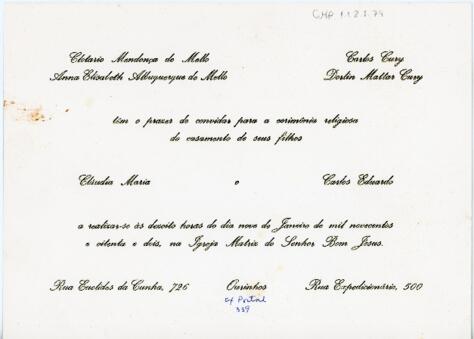 CMP 1.1.2.1.79
Clotario Mendonça de Mello Carlos Cury
Anna Elisabeth Albuquerque de Mello Dorlin Mattar Cury
têm o prazer de convidar para a cerimônia religiosa
do casamento de seus filhos
Cláudia Maria e Carlos Eduardo
a realizar-se às dezoito horas do dia nove de Janeiro de mil novecentos
e oitenta e dois, na Igreja Matriz do Senhor Bom Jesus.
Rua Euclides da Cunha, 726 Ourinhos Rua Expedicionário, 500
cx Postal
339